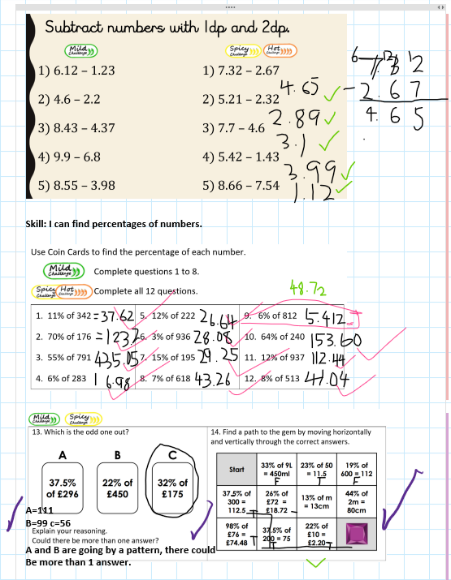 Subtract numbers with 1dp and 2dp.
Mild Challenge
Spicy Challenge Hot Challenge
1) 6.12 – 1.23
1) 7.32 – 2.67 4.65
2) 4.6 – 2.2
2) 5.21 – 2.32 2.89
3) 8.43 – 4.37
3) 7.7 – 4.6 3.1
4) 9.9 – 6.8
4) 5.42 – 1.43 3.99
5) 8.55 – 3.98
5) 8.66 – 7.54 1.12
- 2.67
4.65
Skill: I can find percentages of numbers.
Use Coin Cards to find the percentage of each number.
Mild Challenge Complete questions 1 to 8.
Spicy Challenge Hot Challenge Complete all 12 questions.
48.72
1. 11% of 342 =37.62 5. 12% of 222 26.64 9. 6% of 812 5.412
2. 70% of 176 =123.2 6. 3% of 936 28.08 10. 64% of 240 153.60
3. 55% of 791 435.05 7. 15% of 195 29.25 11. 12% of 937 112.44
4. 6% of 283 16.98 8. 7% of 618 43.26 12. 8% of 513 41.04
Mild Challenge Spicy Challenge
13. Which is the odd one out?
A B C
37.5% of £296
22% of £450
32% of £175
A=111
B=99 c=56
Explain your reasoning.
Could there be more than one answer?
A and B are going by a pattern, there could
Be more than 1 answer.
14. Find a path to the gem by moving horizontally
and vertically through the correct answers.
Start
33% of 9L = 450ml F
23% of 50 = 11.5 T
19% of 600 = 112 F
37.5% of 300 = 112.5 T
26% of £72 = £18.72 T
13% of m = 13cm
44% of 2m = 80cm
98% of £76 = £74.48 T
37.5% of 200 = 75 T
22% of £10 = £2.20 T